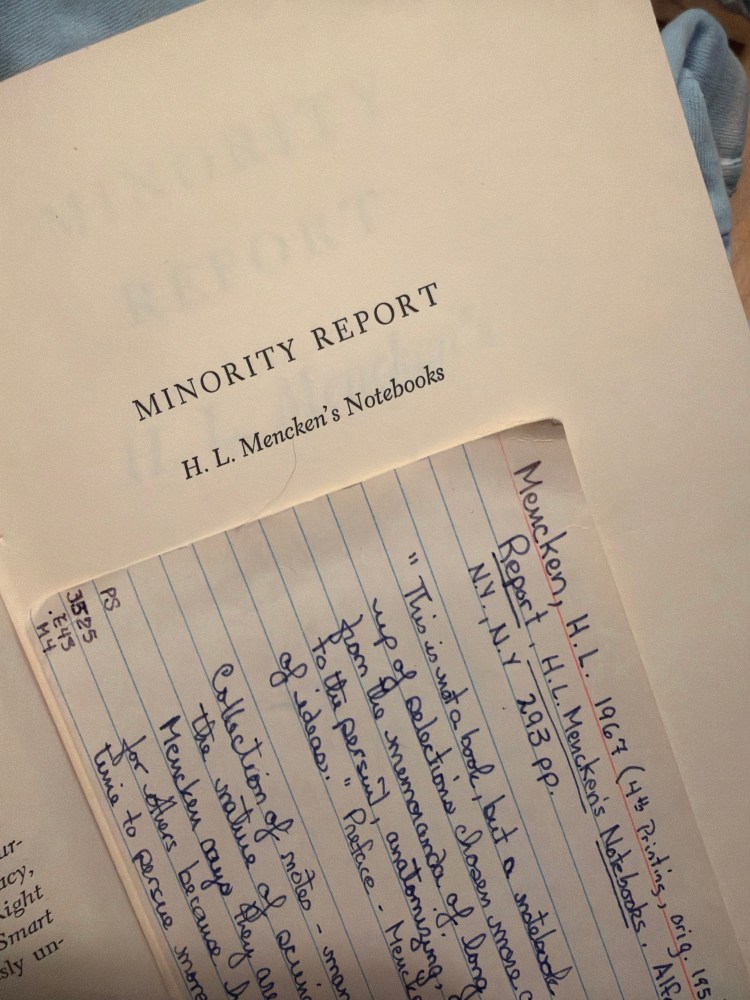 MINORITY REPORT
H. L. Mencken's Notebooks
Mencken, H.L. 1967 (4th Printing, orig. 195
Report, H.L. Mencken's Notebooks. Alf
NY., N.Y 293 pp.
"This is not a book, but a notebook
up of selections chosen more o
from the memoranda of long
to the persuit, anatomizing,
of ideas." Preface - Mencke
Collection of notes - man
the nature of
Mencken says they are
for others because h
time to persue more
PS
3525
.E43
M4
ur-
acy,
Right
Smart
sly un-